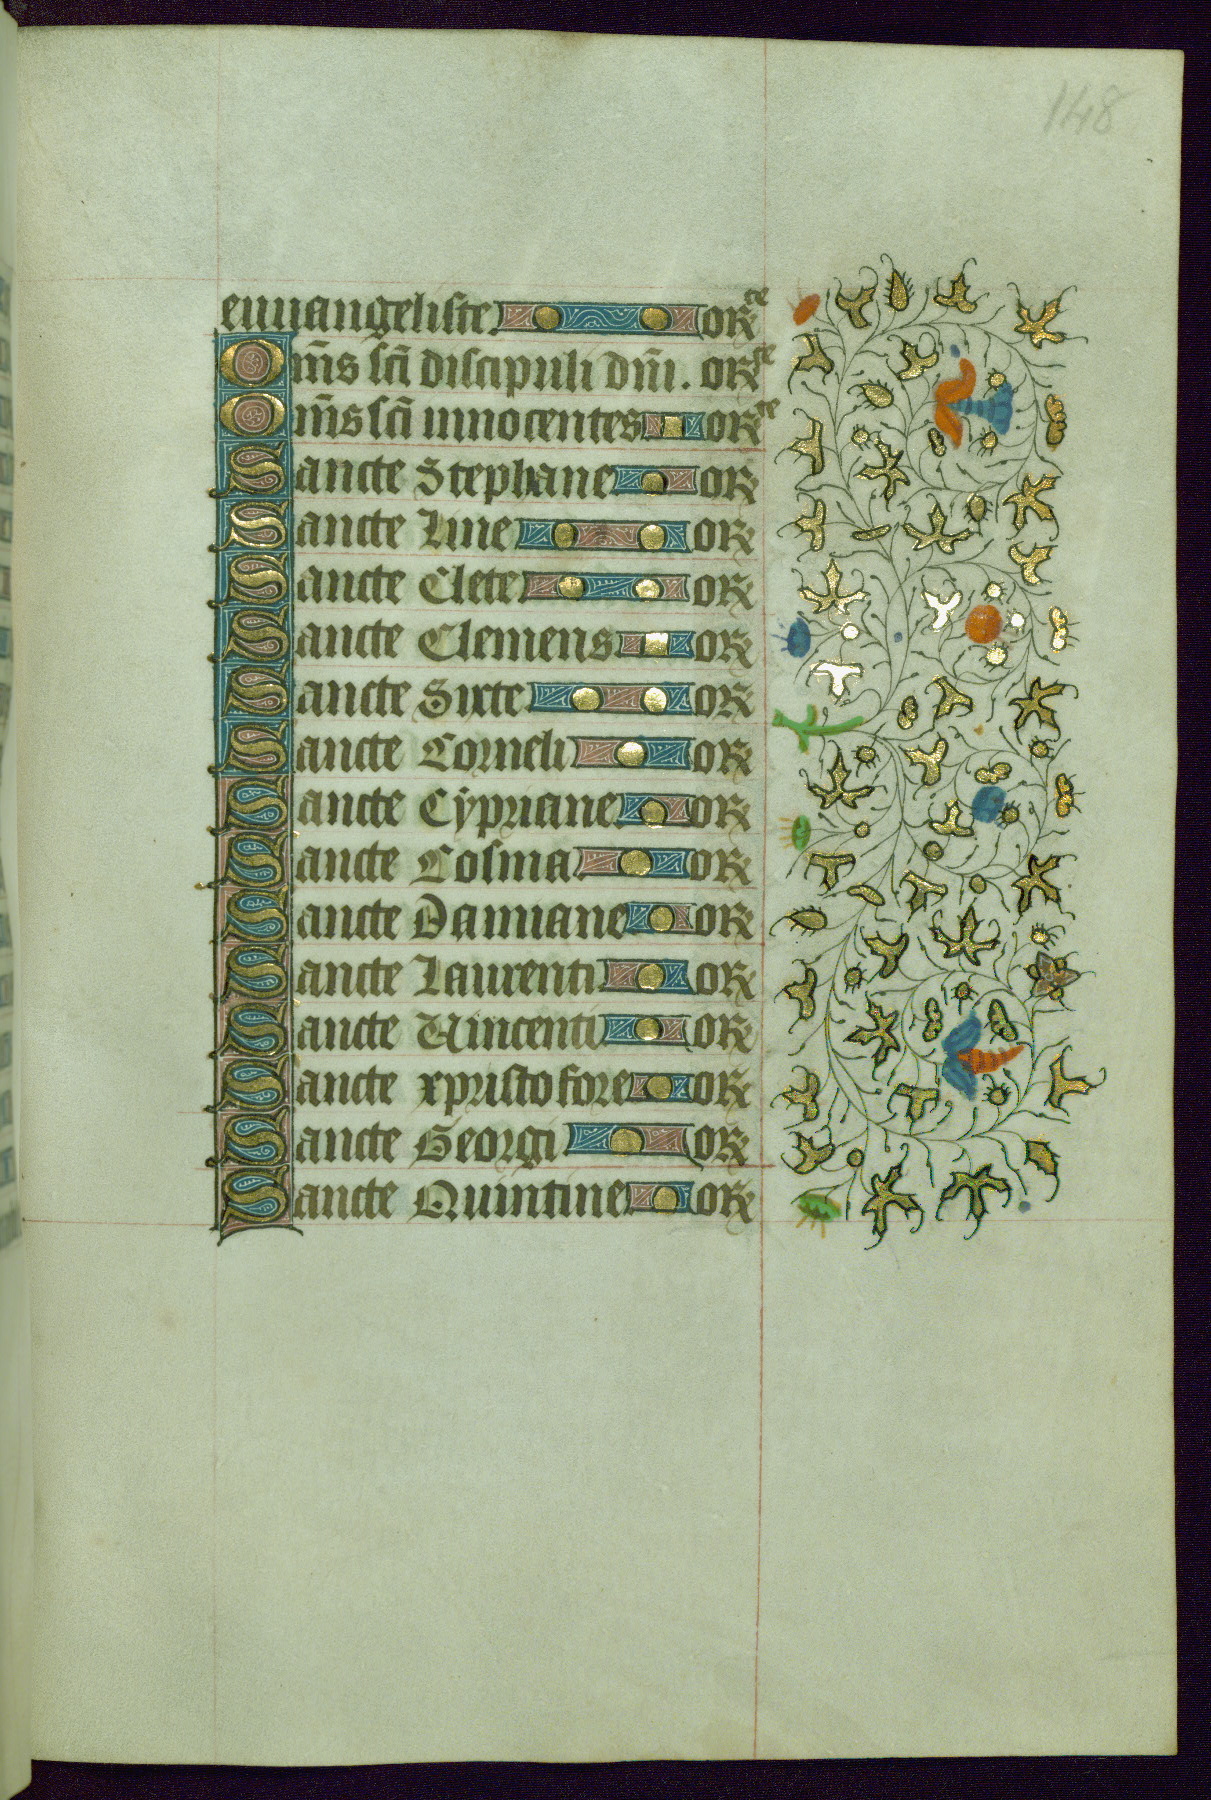 148
euuangeliste orate
Om̄s sc̄i discipuli dn̄i. orate
Om̄s sc̄i innocentes orate
Sancte Stephane or
Sancte Line or
Sancte Clete or
Sancte Clemens or
Sancte Sixte or
Sancte Corneli or
Sancte Cẏpriane or
Sancte Cosma or
Sancte Damiane or
Sancte Laurenti or
Sancte Vincenti or
Sancte xpristofore or
Sancte Georgi or
Sancte Quintine or